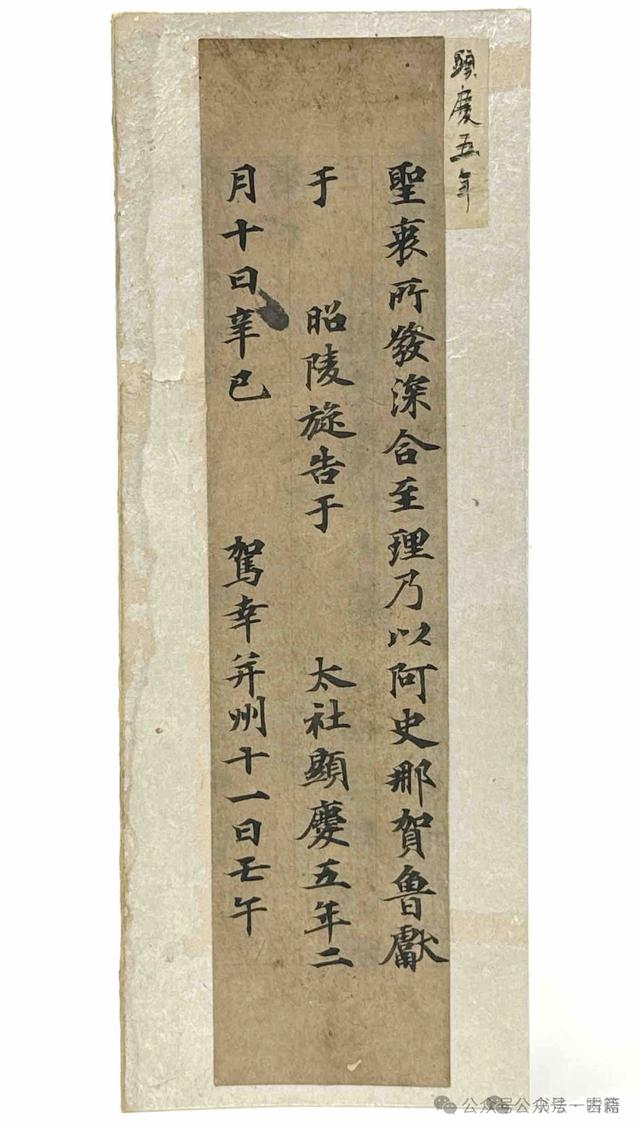 顯慶五年
聖衷所發深合至理乃以阿史那賀魯獻
于 昭陵旋告于 太社顯慶五年二
月十日辛巳 駕幸并州十一日壬午